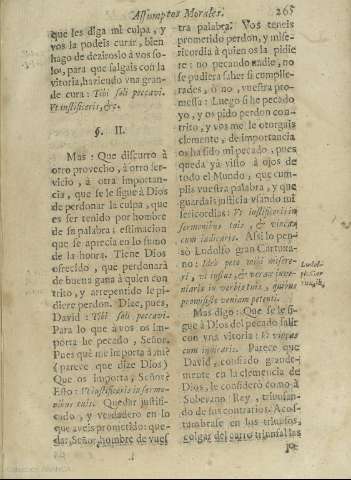 Assumptos Morales. 265
que les diga mi culpa, y
vos la podeis curar, bien
hago de deziroslo à vos so-
lo, para que salgais con la
vitoria, haciendo vna gran-
de cura: Tibi soli peccavi.
Vt iustificeris, &c.
§. II.
Mas: Que discurro à
otro provecho, à otro ser-
vicio, à otra importan-
cia, que se le sigue à Dios
de perdonar la culpa, que
es ser tenido por hombre
de su palabra; estimacion
que se aprecia en lo sumo
de la honra. Tiene Dios
ofrecido, que perdonarà
de buena gana à quien con
trito, y arrepentido le pi-
diere perdon. Dice, pues,
David: Tibi soli peccavi.
Para lo que à vos os im-
porta he pecado, Señor.
Pues què me importa à mi?
(parece que dize Dios)
Què os importa, Señor?
Esto: Vt iustificeris in sermo-
nibus tuis. Quedar justifi-
cado, y verdadero en lo
que aveis prometido: que-
dar, Señor, hombre de vues
tra palabra. Vos teneis
prometido perdon, y mise-
ricordia à quien os la pidie
re: no pecando nadie, no
se pudiera saber si cumplie-
rades, ò no, vuestra pro-
messa: Luego si he pecado
yo, y os pido perdon con-
trito, y vos me le otorgais
clemente, de importancia
os ha sido mi pecado, pues
queda yà visto à ojos de
todo el Mundo, que cum-
plis vuestra palabra, y que
guardais justicia vsando mi
sericordias: Vt iustificeris in
sermonibus tuis, & vincas
cum iudicaris. Assi lo pen-
sò Ludolfo gran Cartuxa-
no: Ideo peto mihi misere-
ri, vt iustus, & verax inve-
niaris in verbis tuis, quibus
promisisti veniam petenti.
Mas digo: Que se le si-
gue à Dios del pecado salir
con vna vitoria: Vt vincas
cum iudicaris. Parece que
David, confiado grande-
mente en la clemencia de
Dios, le considerò como à
Soberano Rey, triunfan-
do de sus contrarios. Acos-
tumbrase en los triunfos,
colgar del carro triunfal las
jo-